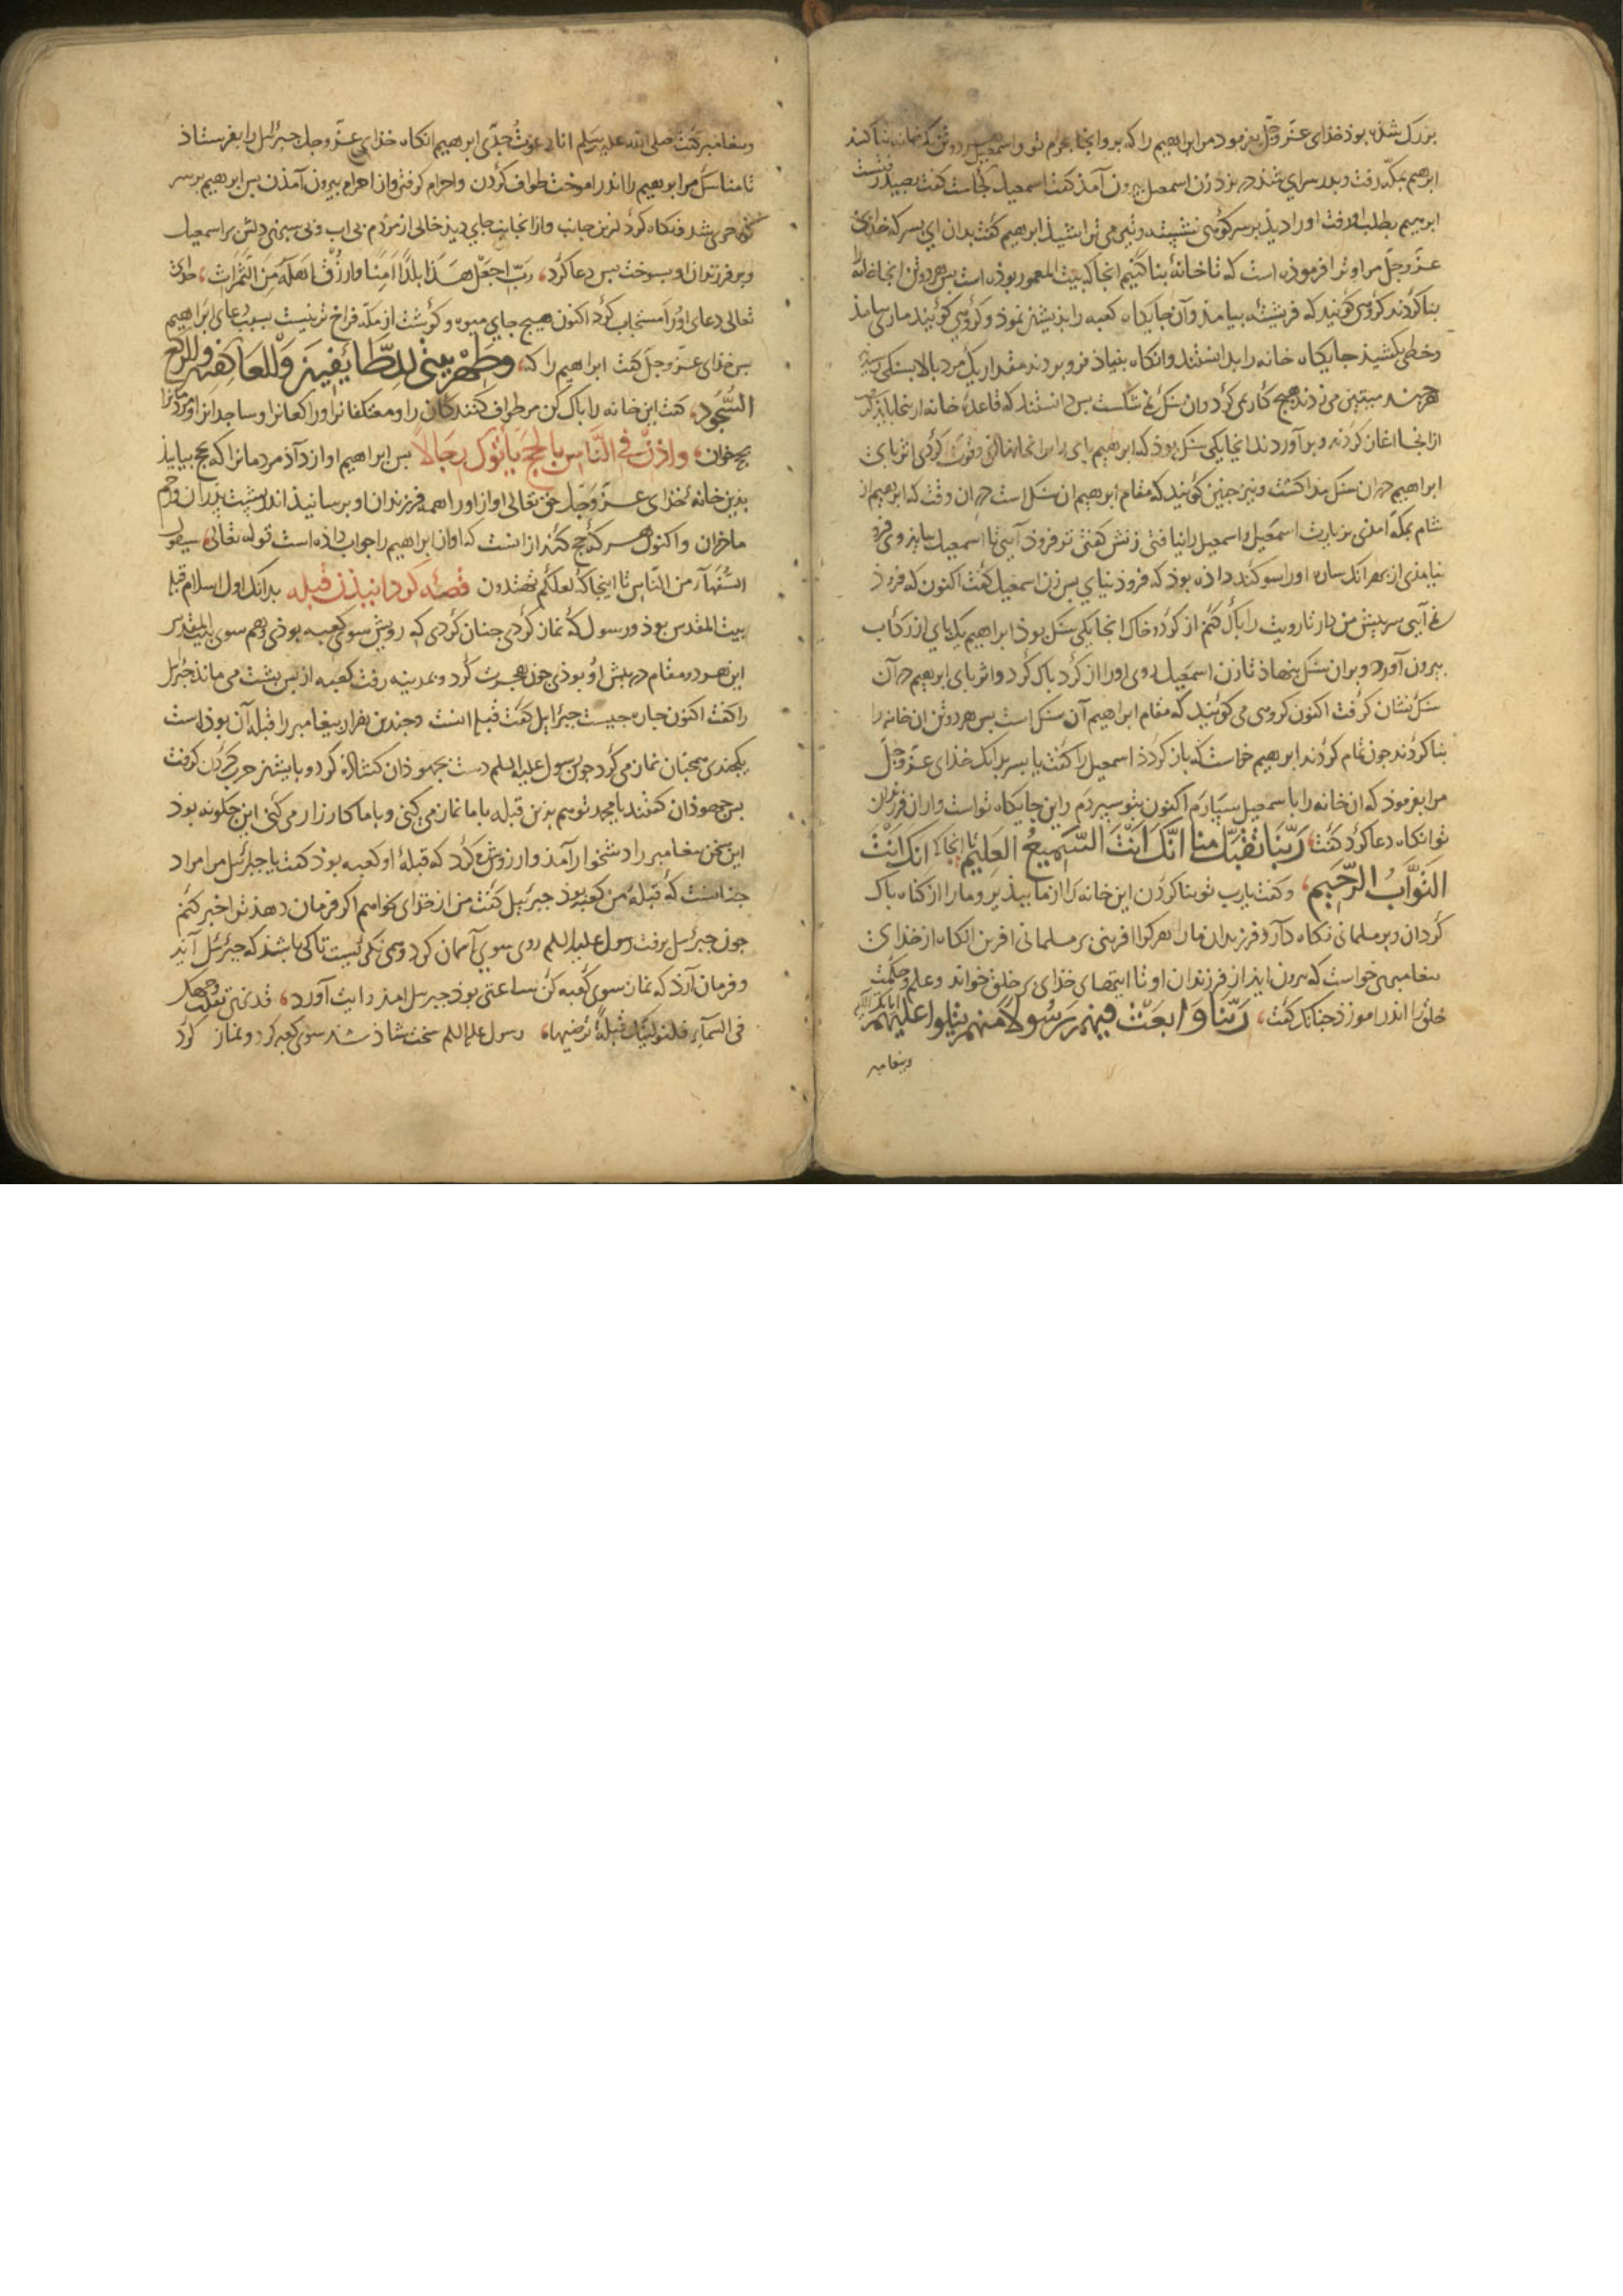 بزرک شده بوذ خذای عزّ وجلّ بفرموذ مر ابراهیم را که برو انجا بحرم تو و اسمعیل هر دوتن که خانه بنا کنید
ابرهیم بمکه رفت و بدر سرای شذ زن اسمعیل بیرون آمذ کفت اسمعیل کجاست کفت بصید رفتست
ابرهیم بطلب او رفت او را دیذ بر سر کوهی نشسته و تیر می تراشیذ ابرهیم کفت بدان ای پسر که خذای
عزّ وجلّ مرا و ترا فرموذه است که تا خانۀ بنا کنیم انجا که بیت المعمور بوذه است بس هر دوتن انجا خانه
بنا کردند کروهی کویند که فریشته بیامذ وآن جایکاه کعبه را بذیشان نموذ و کروهی کویند ماری بیامذ
وخطی بکشیذ جایکاه خانه را بدانستند وانکاه بنیاذ فرو بردند مقدار یک مرد بالا بسنکی
هر چند میتین می زدند هیچ کار نمی کرد وان سنک نمی شکست بس دانستند که قاعدۀ خانه از انجا
از انجا اغاز کردند و بر آوردند انجا یکی سنک بوذ که ابرهیم بای بر انجا نهاذی وقوت کردی اثر بای
ابراهیم در ان سنک بیذا کشت ونیز چنین کویند که مقام ابرهیم ان سنک است در ان وقت که ابرهیم از
شام بمکه آمذی بزیارت اسمعیل و اسمعیل را نیافتی زنش کفتی تو فروذ آیی تا اسمعیل بیایذ وی فرو
نیامذی از بهر انک ساره او را سوکند داذه بوذ که فروذ نیایی بس زن اسمعیل کفت اکنون که فروذ
نمی آیی سر پیش من دار تا رویت را باک کنم از کرد و خاک انجا یکی سنک بوذ ابراهیم یک بای از رکاب
بیرون آورد و بران سنک بنهاذ تا زن اسمعیل روی او را از کرد باک کرد و اثر بای ابرهیم در آن
سنک نشان کرفت اکنون کروهی می کویند که مقام ابراهیم آن سنک است بس هر دوتن ان خانه را
بنا کردند جون تمام کردند ابرهیم خواست که باز کردذ اسمعیل را کفت یا پسر بدانک خذای عزّ وجلّ
مرا بفرموذ که ان خانه را باسمعیل سپارم اکنون بتو سپردم و این جایکاه تو است و ازان فرزندان
تو انکاه دعا کرد کفت رَبَّنَا تَقَبَّل منا اِنَّکَ اَنتَ السَّمیعُ العَلیم تا انجا که انک انت
التَوَّابُ الرَّحیم، و کفت یارب تو بنا کردن این خانه را از ما ببذیر و ما را از کناه باک
کردان و بر مسلمانی نکاه دار و فرزندان ما را هر کرا افرینی بر مسلمانی افرین انکاه از خذای
بیغامبری خواست که بیرون ایذ از فرزندان او تا ایتهای خذای بر خلق خواند و علم و حکمت
خلق را اندر اموزذ جنانک کفت، رَبَّنا وَابعَث فیهم رَسُولاً منهم یتلوا علیهم
وبیغامبر
وبیغامبر کفت صلی الله علیه وسلم انا دعوتُ جدّی ابرهیم انکاه خذای عزّ وجل جبرائیل را بفرستاذ
تا مناسک مر ابرهیم را اندر اموخت طواف کردن واحرام کرفتن واز احرام بیرون آمذن بس ابرهیم بر سر
کوهی شد ونکاه کرد ازین جانب واز انجانب جای دیذ خالی از مردم بی اب و بی سبزی دلش بر اسمعیل
وبر فرزندان او بسوخت بس دعا کرد، ربّ اجعَل هَذَا بلدًا اَمِنًا وارزُق اَهلَهُ مِنَ الثَّمَراتِ، خذای
تعالی دعای اورا مستجاب کرد اکنون هیچ جای میوه و کوشت از مکه فراخ تر نیست بسبب دعای ابراهیم
بس خذای عزّ وجلّ کفت ابراهیم را که، وَطَهِّر بیتی للطَّائِفین وَالعَاکِفین والرکع
السُّجُود، کفت این خانه را باک کن مر طواف کنندکان را ومعتکفانرا وراکعانرا وساجدانرا و مردمانرا
بحج خوان، واذّن فی النَّاسِ بالحجّ یَأتُوکَ رِجَالاً بس ابراهیم اواز دآذ مردمانرا که بحج بیایید
بذین خانه خذای عزّ وَجلّ حق تعالی اواز او را همه فرزندان او برسانیذ اندر پشت پدران ورحم
ماذران واکنون هر که حج کند از انست که اواز ابراهیم را جواب داذه است قوله تعالی، سیقول
السُّفَهآء من النّاس تا اینجا که لعلکم تهتدون قصّه کردانیذن قبله بدانک اول اسلام قبله
بیت المقدس بوذ و رسول که نماز کردی جنان کردی که رویش سوی کعبه بوذی وهم سوی بیت المقدس
این هر دو مقام در پیش او بوذی جون هجرت کرد و بمدینه رفت کعبه از بس پشت می ماند جبرئیل
را کفت اکنون جاره جیست جبرایل کفت قبله اینست وجندین هزار بیغامبر را قبله آن بوذ است
یکجندی همجنان نماز می کرد جون رسول علیه السلم دست بجهوذان کشاذه کرد و بایشان حرب کردن کرفت
بس جهوذان کفتند یا محمد تو هم بزین قبله با ما نماز می کنی و با ما کارزار می کنی این جکونه بوذ
این سخن بیغامبر را دشخوار آمذ و آرزوش کرد که قبلۀ او کعبه بوذ کفت یا جبرئیل مرا مراد
جنانست که قبلۀ من کعبه بوذ جبرئیل کفت من از خذای بخواهم اکر فرمان دهذ ترا خبر کنم
جون جبرئیل برفت رسول علیه السلم روی سوی آسمان کرد و همی نکریست تا کی باشذ که جبرئیل آیذ
و فرمان آرذ که نماز سوی کعبه کن ساعتی بوذ جبرئیل امذ و ایت آورد، قد نری تقلّب وجهک
فی السمآء فلنولینک قبلةً ترضیها، رسول علیه السلم سخت شاذ شد سوی کعبه کرد و نماز کرد